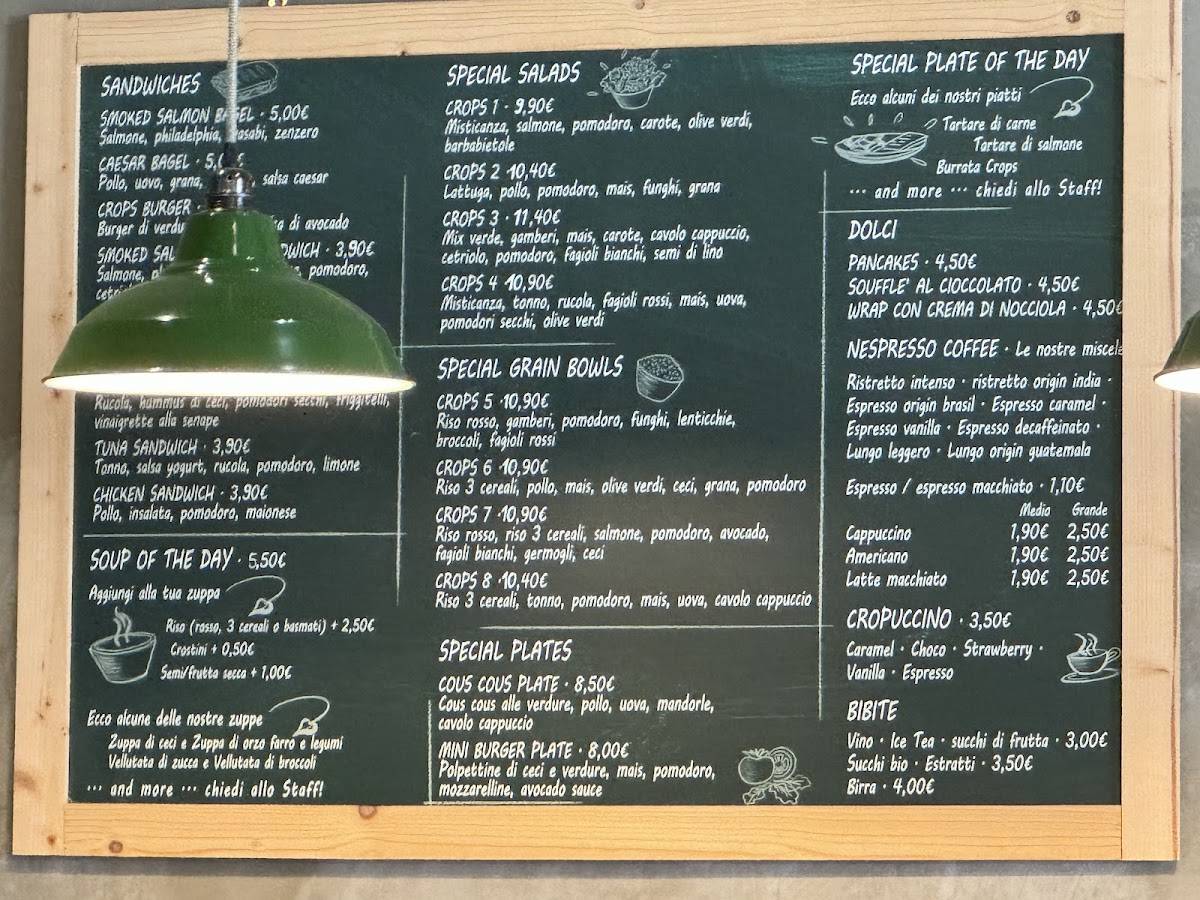 SANDWICHES
SMOKED SALMON BAGEL · 5,00€
Salmone, philadelphia, wasabi, zenzero
CAESAR BAGEL
Pollo, uovo, grana, salsa caesar
CROPS BURGER
Burger di di avocado
SMOKED · 3,90€
Salmone, pomodoro,
Rucola, hummus di ceci, pomodori secchi, friggitelli,
vinaigrette alla senape
TUNA SANDWICH · 3,90€
Tonno, salsa yogurt, rucola, pomodoro, limone
CHICKEN SANDWICH · 3,90€
Pollo, insalata, pomodoro, maionese
SOUP OF THE DAY · 5,50€
Aggiungi alla tua zuppa
Riso (rosso, 3 cereali o basmati) + 2,50€
Crostini + 0,50€
Semi/frutta secca + 1,00€
Ecco alcune delle nostre zuppe
Zuppa di ceci e Zuppa di orzo farro e legumi
Vellutata di zucca e Vellutata di broccoli
··· and more ··· chiedi allo Staff!
SPECIAL SALADS
CROPS 1 · 9,90€
Misticanza, salmone, pomodoro, carote, olive verdi,
barbabietole
CROPS 2 · 10,40€
Lattuga, pollo, pomodoro, mais, funghi, grana
CROPS 3 · 11,40€
Mix verde, gamberi, mais, carote, cavolo cappuccio,
cetriolo, pomodoro, fagioli bianchi, semi di lino
CROPS 4 · 10,90€
Misticanza, tonno, rucola, fagioli rossi, mais, uova,
pomodori secchi, olive verdi
SPECIAL GRAIN BOWLS
CROPS 5 · 10,90€
Riso rosso, gamberi, pomodoro, funghi, lenticchie,
broccoli, fagioli rossi
CROPS 6 · 10,90€
Riso 3 cereali, pollo, mais, olive verdi, ceci, grana, pomodoro
CROPS 7 · 10,90€
Riso rosso, riso 3 cereali, salmone, pomodoro, avocado,
fagioli bianchi, germogli, ceci
CROPS 8 · 10,40€
Riso 3 cereali, tonno, pomodoro, mais, uova, cavolo cappuccio
SPECIAL PLATES
COUS COUS PLATE · 8,50€
Cous cous alle verdure, pollo, uova, mandorle,
cavolo cappuccio
MINI BURGER PLATE · 8,00€
Polpettine di ceci e verdure, mais, pomodoro,
mozzarelline, avocado sauce
SPECIAL PLATE OF THE DAY
Ecco alcuni dei nostri piatti
Tartare di carne
Tartare di salmone
Burrata Crops
··· and more ··· chiedi allo Staff!
DOLCI
PANCAKES · 4,50€
SOUFFLE' AL CIOCCOLATO · 4,50€
WRAP CON CREMA DI NOCCIOLA · 4,50€
NESPRESSO COFFEE · Le nostre miscele
Ristretto intenso · ristretto origin india ·
Espresso origin brasil · Espresso caramel ·
Espresso vanilla · Espresso decaffeinato ·
Lungo leggero · Lungo origin guatemala
Espresso / espresso macchiato · 1,10€
Medio Grande
Cappuccino 1,90€ 2,50€
Americano 1,90€ 2,50€
Latte macchiato 1,90€ 2,50€
CROPUCCINO · 3,50€
Caramel · Choco · Strawberry ·
Vanilla · Espresso
BIBITE
Vino · Ice Tea · succhi di frutta · 3,00€
Succhi bio · Estratti · 3,50€
Birra · 4,00€